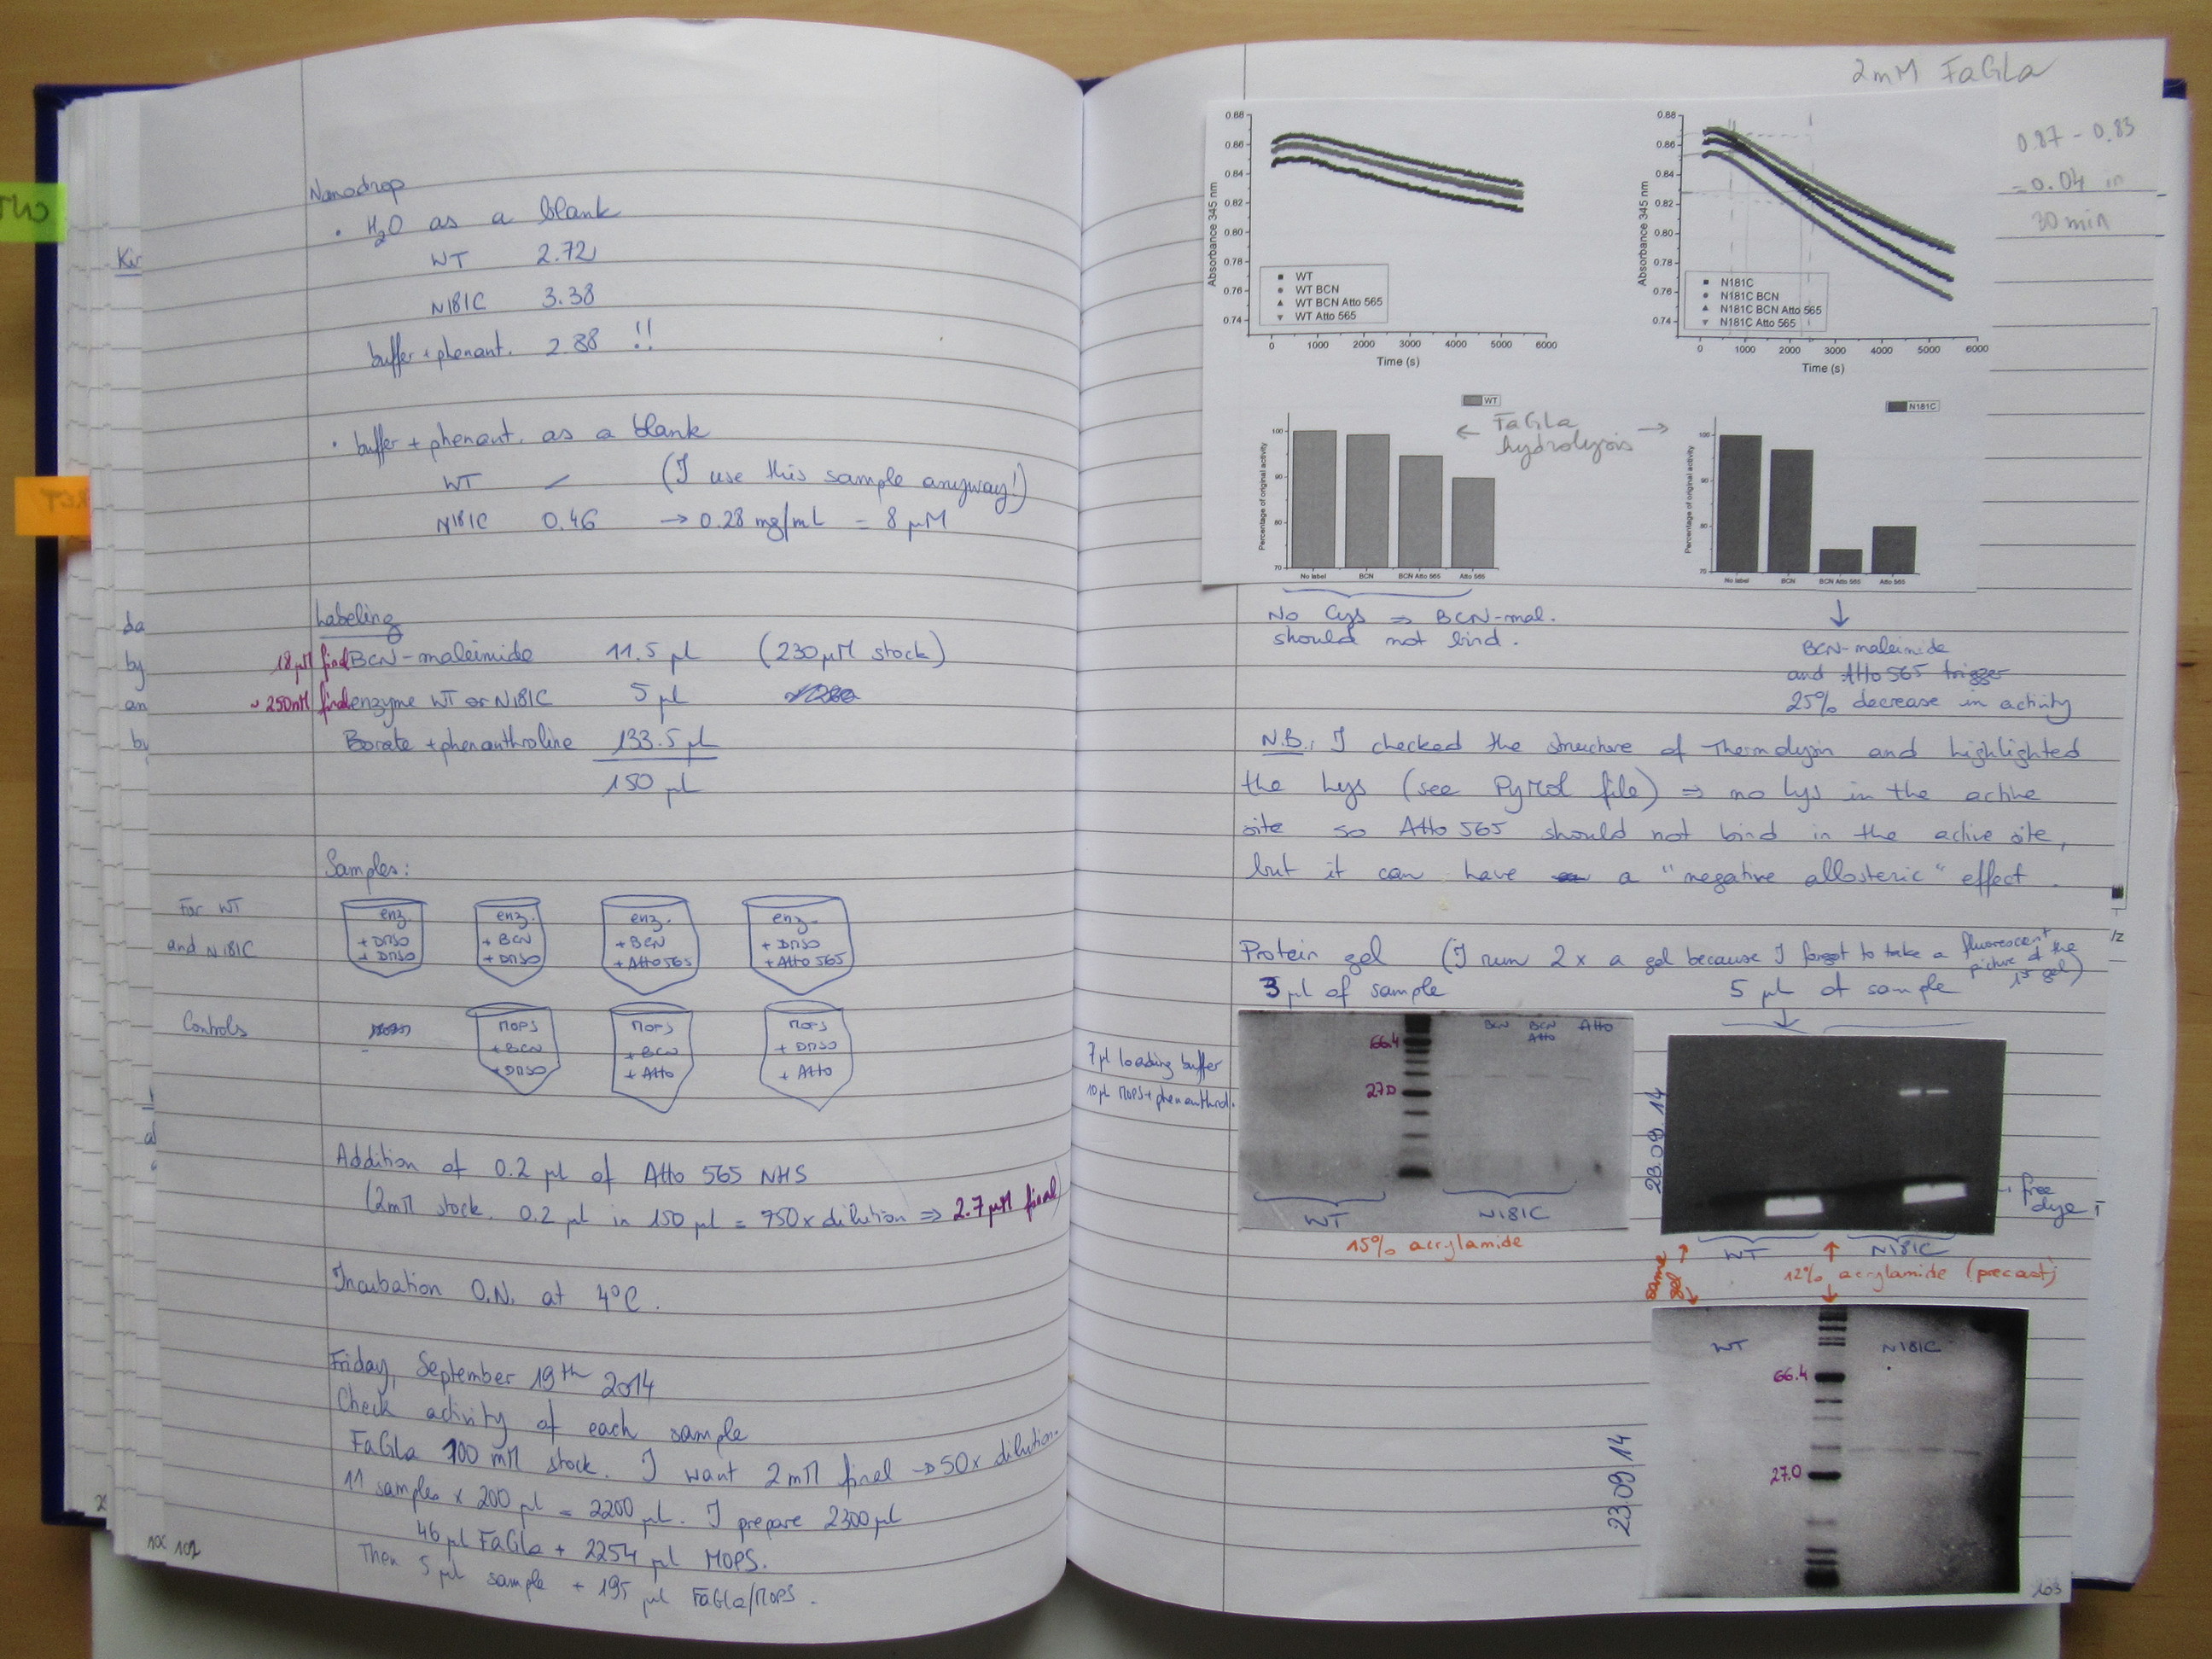 Nanodrop
· H2O as a blank
WT 2.72
N181C 3.38
buffer + phenant. 2.88 !!
· buffer + phenant. as a blank
WT / (I use this sample anyway!)
N181C 0.46 → 0.28 mg/mL = 8 µM
Labeling
18 µM final BCN-maleimide 11.5 µl (230 µM stock)
~ 250nM final enzyme WT or N181C 5 µl
Borate + phenanthroline 133.5 µl
150 µl
Samples:
For WT
and N181C
enz.
+ DMSO
+ DMSO
enz.
+ BCN
+ DMSO
enz.
+ BCN
+ Atto 565
enz.
+ DMSO
+ Atto 565
Controls
MOPS
+ BCN
+ DMSO
MOPS
+ BCN
+ Atto
MOPS
+ DMSO
+ Atto
Addition of 0.2 µl of Atto 565 NHS
(2mM stock. 0.2 µl in 150 µl = 750x dilution ⇒ 2.7 µM final)
Incubation O.N. at 4°C.
Friday, September 19th 2014
Check activity of each sample
FaGla 100 mM stock. I want 2 mM final → 50x dilution.
11 samples x 200 µl = 2200 µl. I prepare 2300 µl
46 µl FaGla + 2254 µl MOPS.
Then 5 µl sample + 195 µl FaGla/MOPS.
102
Ki
da
by
en
by
2mM FaGla
0.87 - 0.83
= 0.04 in
30 min
0.88
0.86
0.84
0.82
0.80
0.78
0.76
0.74
Absorbance 345 nm
WT
WT BCN
WT BCN Atto 565
WT Atto 565
0 1000 2000 3000 4000 5000 6000
Time (s)
0.88
0.86
0.84
0.82
0.80
0.78
0.76
0.74
Absorbance 345 nm
N181C
N181C BCN
N181C BCN Atto 565
N181C Atto 565
0 1000 2000 3000 4000 5000 6000
Time (s)
WT
100
90
80
70
Percentage of original activity
No label BCN BCN Atto 565 Atto 565
← FaGla →
hydrolysis
N181C
100
90
80
70
Percentage of original activity
No label BCN BCN Atto 565 Atto 565
No Cys ⇒ BCN-mal.
should not bind.
BCN-maleimide
and Atto 565 trigger
25% decrease in activity
N.B.: I checked the structure of Thermolysin and highlighted
the Lys (see PyMol file) ⇒ no Lys in the active
site so Atto 565 should not bind in the active site,
but it can have a "negative allosteric" effect.
Protein gel (I run 2 x a gel because I forgot to take a fluorescent
picture of the
1st gel)
3 µl of sample
5 µl of sample
7 µl loading buffer
10 µl MOPS + phenanthrol.
BCN BCN Atto
Atto
66.4
27.0
WT N181C
15% acrylamide
23.09.14
free
dye
WT N181C
same
gel
12% acrylamide (precast)
23.09.14
WT N181C
66.4
27.0
103